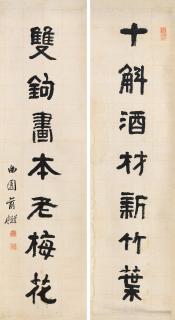 十斛酒材新竹葉
雙鉤畫本老梅花
曲園俞樾